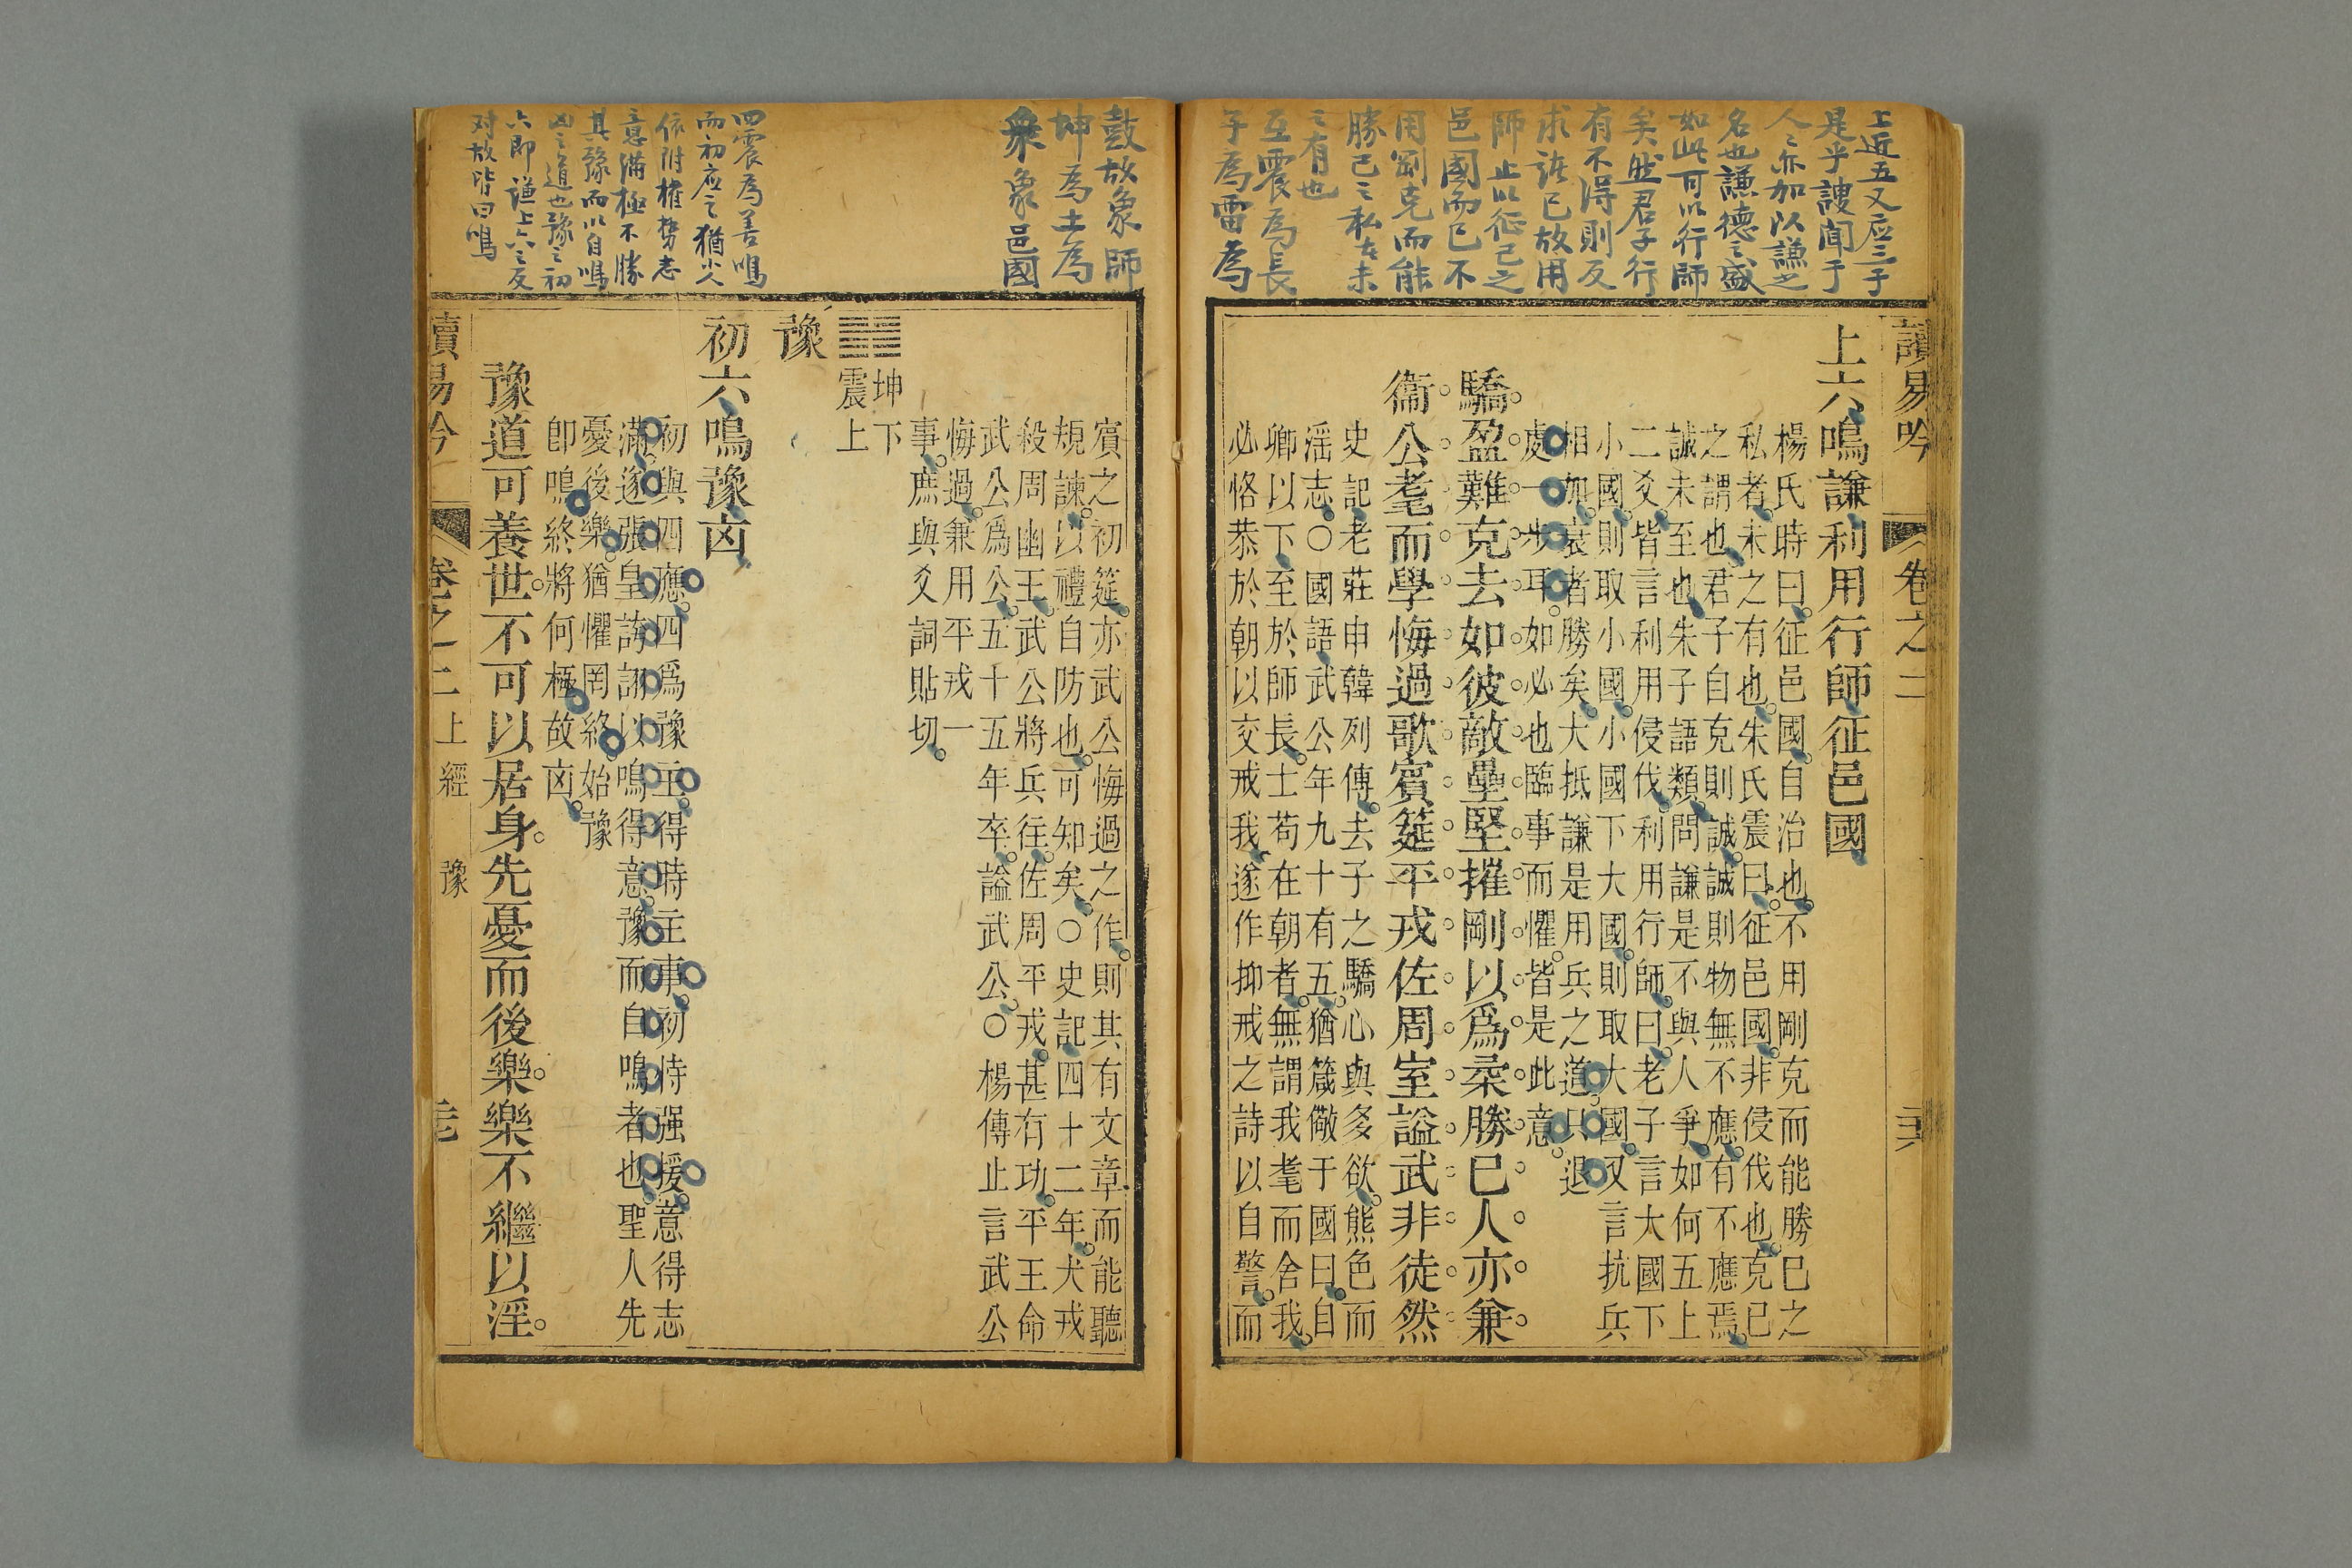 上近五又应三子
是乎謏聞于
人之亦加以謙之
名也謙德之盛
如此可以行師
矣然君子行
有不得則反
求諸已故用
師止以征己之
邑國而已不
用剛克而能
勝己之私者未
之有也
互震為長
子為雷為
讀易吟
卷之二
二六
上六鳴謙利用行師征邑國
楊氏時曰征邑國自治也不用剛克而能勝已之
私者未之有也朱氏震曰征邑國非侵伐也克已
之謂也君子自克則誠誠則物無不應有不應焉
誠未至也朱子語類問謙是不與人爭如何五上
二爻皆言利用侵伐利用行師曰老子言大國下
小國則取小國小國下大國則取大國又言抗兵
相加哀者勝矣大抵謙是用兵之道只退
處一步耳如必也臨事而懼皆是此意
驕盈難克去如彼敵壘堅摧剛以爲柔勝已人亦兼
衞公耄而學悔過歌賓筵平戎佐周室謚武非徒然
史記老莊申韓列傳去子之驕心與多欲熊色而
淫志〇國語武公年九十有五猶箴儆于國曰自
卿以下至於師長士苟在朝者無謂我耄而舍我
必恪恭於朝以交戒我遂作抑戒之詩以自警而
鼓故象師
坤為土為
衆象邑國
四震為善鳴
而初应之猶小人
依附權勢志
意滿極不勝
其豫而以自鳴
凶之道也豫之初
六即謙上六之反
对故皆曰鳴
賓之初筵亦武公悔過之作則其有文章而能聽
規諫以禮自防也可知矣〇史記四十二年犬戎
殺周幽王武公將兵往佐周平戎甚有功平王命
武公爲公五十五年卒謚武公〇楊傳止言武公
悔過兼用平戎一
事庶與爻詞貼切
坤下
震上
豫
初六鳴豫凶
初與四應四爲豫主得時主事初恃强援意得志
滿遂張皇誇詡以鳴得意豫而自鳴者也聖人先
憂後樂猶懼罔終始豫
卽鳴終將何極故凶
豫道可養世不可以居身先憂而後樂樂不繼以淫
讀易吟
卷之二
上經
豫